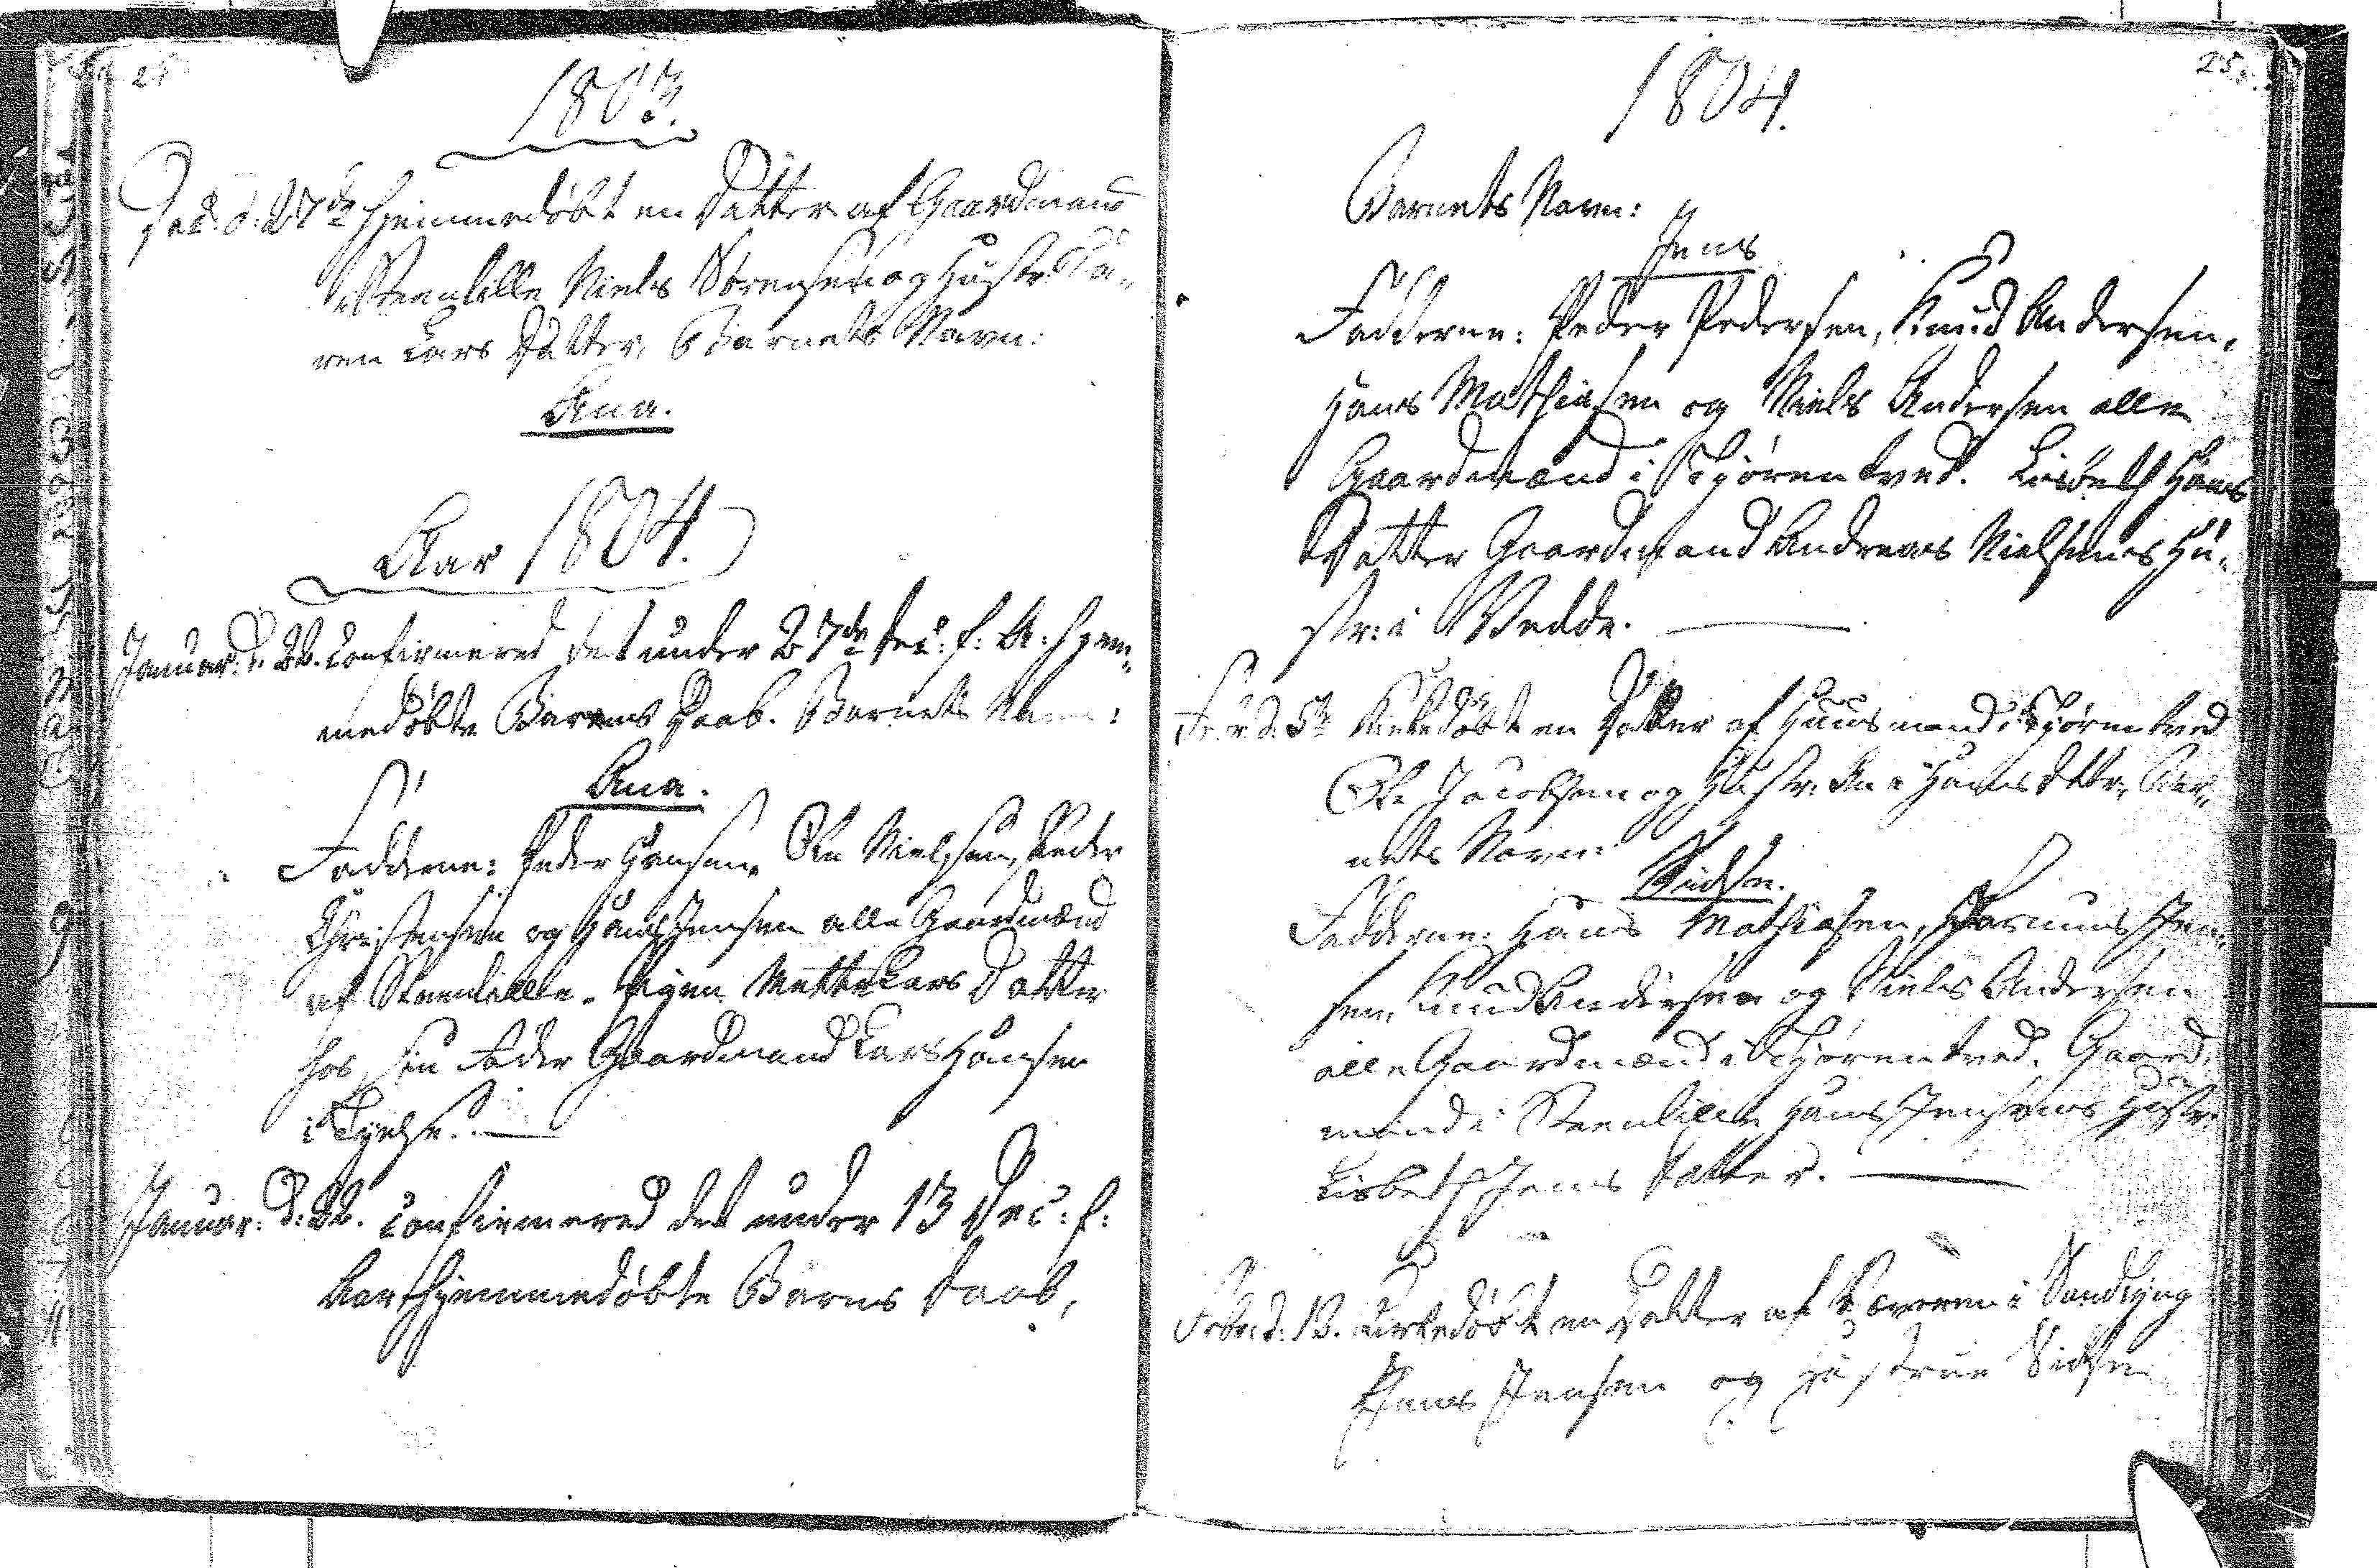 1803.
Dec: d: 27de Hjemmedøbt en Datter af Gaardmand
i Steenlille Niels Sörensen og Hustr: Ka-
ren Lars Datter, Barnets Navn:
Ana.
Aar 1804.
Januar: d: 22. Confirmered det under 27de Dec: f: A: hjem-
medøbte Barns Daab. Barnets Navn:
Ana.
Fadderne: Peder Hansen, Ole Nielsen, Peder
Christensen og Hans Jensen alle Gaardmænd
af Steenlille. Pigen Mette Lars Datter
hos sin Fader Gaardmand Lars Hansen
i
Januar: d: 22. Confirmered det under 13 Dec: f:
Aar hjemmedøbte Barns Daab,
25.
1804.
Barnets Navn:
Jens
Fadderne: Peder Pedersen, Knud Andersen,
Hans Mathiasen og Niels Andersen alle
Gaardmænd i Stjörentved. Lisbeth Hans
Datter Gaardmand Andreas Nielsens Hu-
str: i Wedde.
d: 5te Kirkedøbt en Datter af Huusmand i Stjörentved
Ole Jacobsen og Hustr: Ane Hans Dttr. Bar-
nets Navn:
Sidse.
Fadderne: Hans Mathiasen, Rasmus Jen-
sen, Knud Andersen og Niels Andersen
alle Gaardmænd i Stjörentved. Gaard-
mand i Steenlille Hans Jensens Hustr:
Lisbeth Jens Datter.
Febr: d: 12. Kirkedøbt en Datter af i Sandlyng
Jens Jensen og Hustrue Sidse